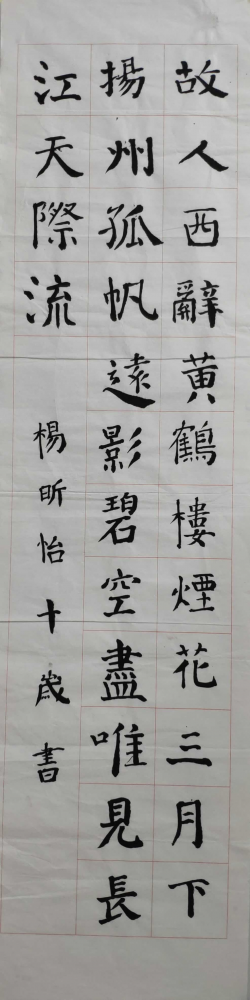 故人西辭黃鶴樓煙花三月下
揚州孤帆遠影碧空盡唯見長
江天際流
楊昕怡十歲書